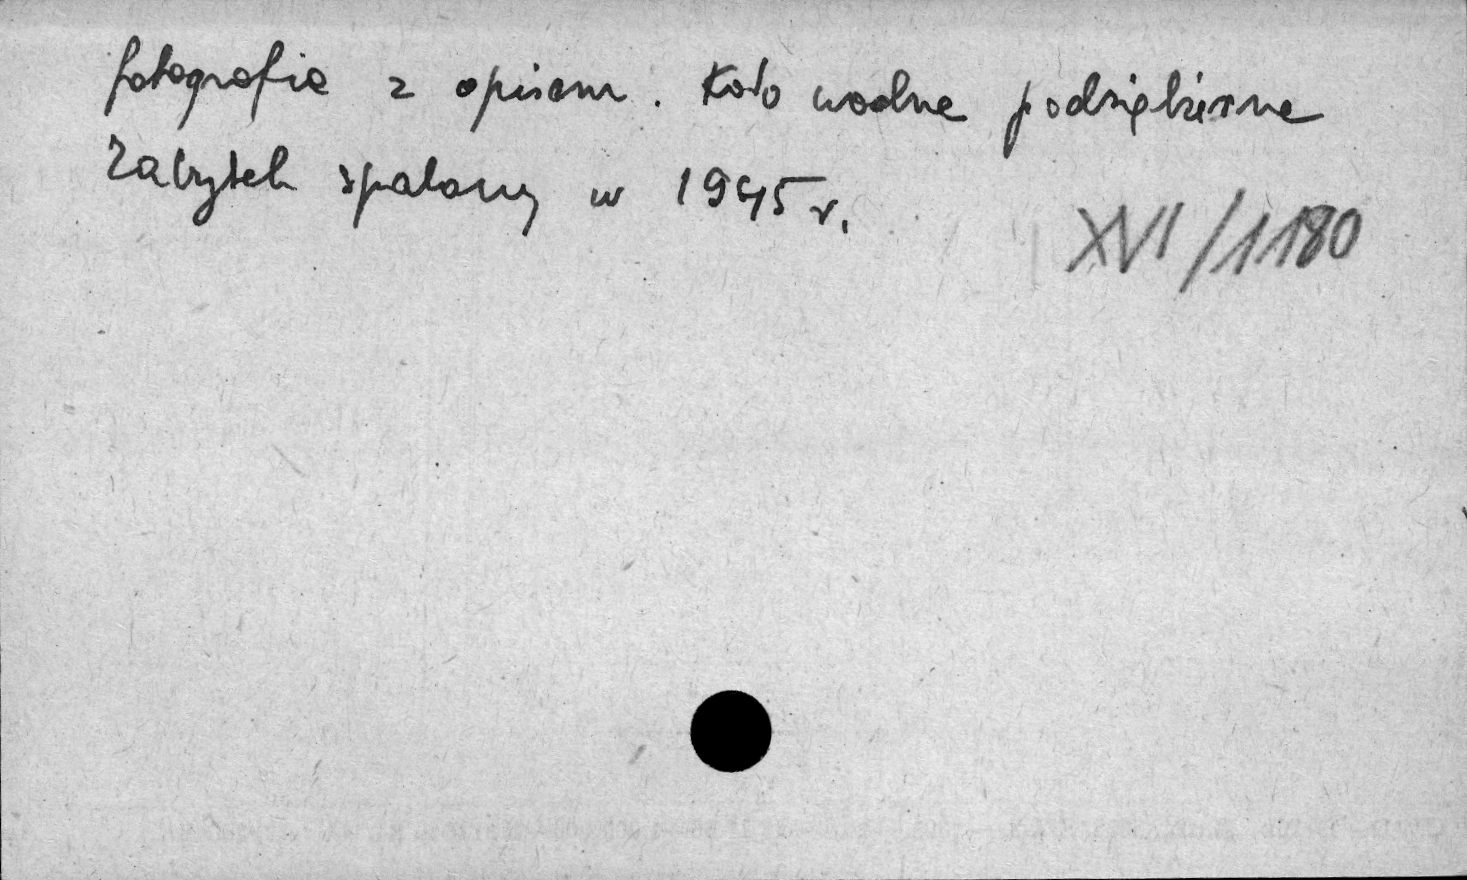 fotografie z opisem. Koło wodne podsiębierne
Zabytek spalony w 1945 r.
XVI/1180